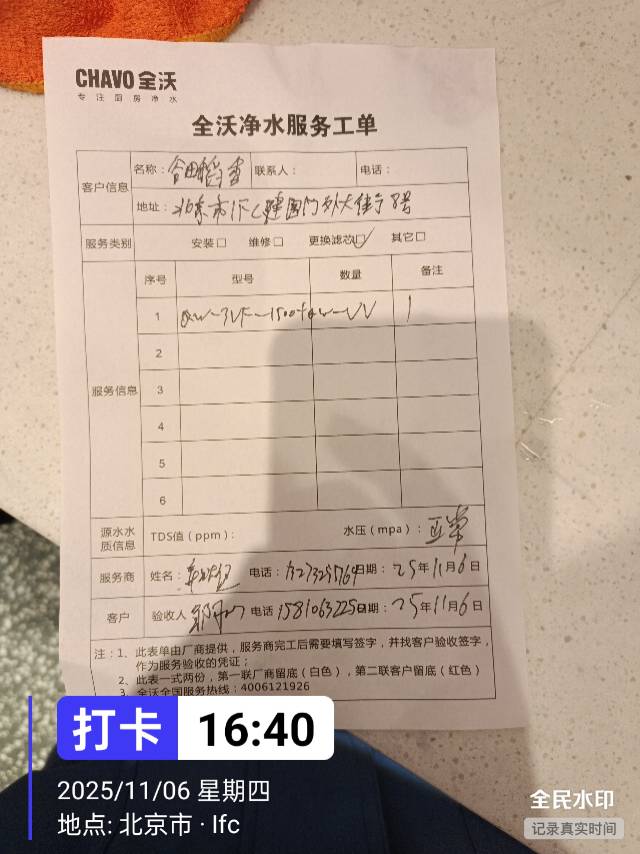 CHAVO 全沃
专注厨房净水
全沃净水服务工单
客户信息
名称： 联系人： 电话：
地址：北京市 建国门外大街 号
服务类别 安装□ 维修□ 更换滤芯☑ 其它□
服务信息
序号 型号 数量 备注
1
2
3
4
5
6
源水水质信息 TDS值（ppm）： 水压（mpa）：正常
服务商 姓名： 电话： 日期：25年11月6日
客户 验收人 电话 日期：25年11月6日
注：1、此表单由厂商提供，服务商完工后需要填写签字，并找客户验收签字，
作为服务验收的凭证；
2、此表一式两份，第一联厂商留底（白色），第二联客户留底（红色）
3、全沃全国服务热线：4006121926
打卡 16:40
2025/11/06 星期四
地点: 北京市 · Ifc
全民水印
记录真实时间